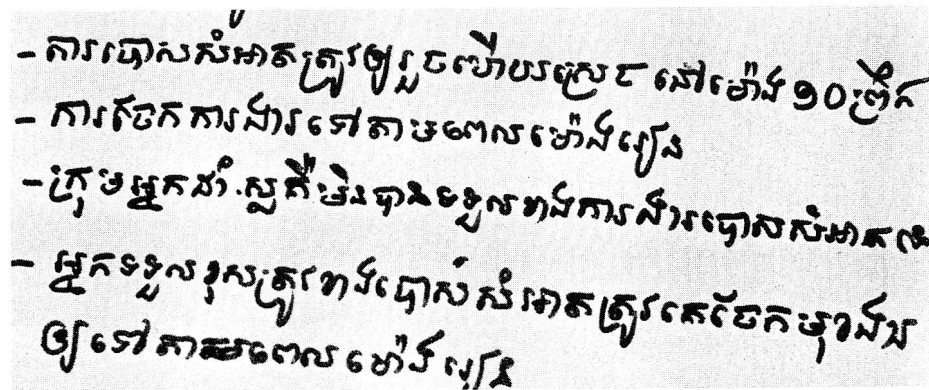 - ការបោសសំអាតត្រូវឲ្យរួចហើយស្រេច នៅម៉ោង ១០ព្រឹក
- ការចែកការងារទៅតាមពេលម៉ោងរៀន
- ក្រុមអ្នកដាំ.ស្លគឺមិនបានទទួលខាងការងារបោសសំអាតទេ
- អ្នកទទួលខុសត្រូវខាងបោសសំអាតត្រូវគេចែកមុខងារ
ឲ្យទៅតាមពេលម៉ោងរៀន